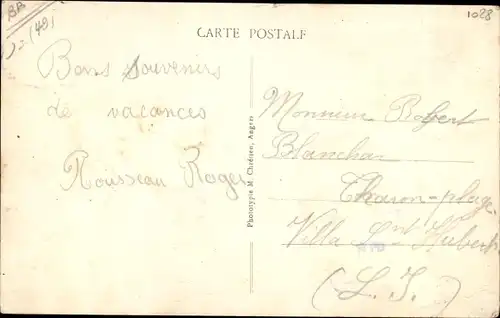 1028
CARTE POSTALE
Bons souvenirs
de vacances
Rousseau Roger
Phototypie M. Chrétien, Angers
Monsieur Robert
Blanchar
Tharon-plage
Villa St Hubert
(L. I.)